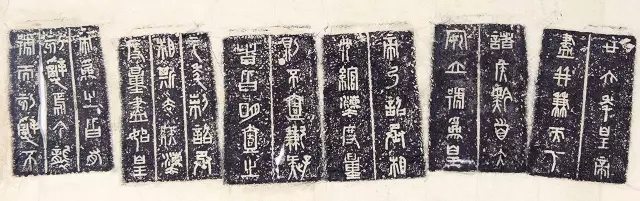 廿六年皇帝
盡并兼天下
諸侯黔首大
安立號為皇
帝乃詔丞相
狀綰灋度量
則不壹歉疑
者皆明壹之
元年制詔丞
相斯去疾灋
度量盡始皇
帝為之皆有
刻辭焉今襲
號而刻辭不